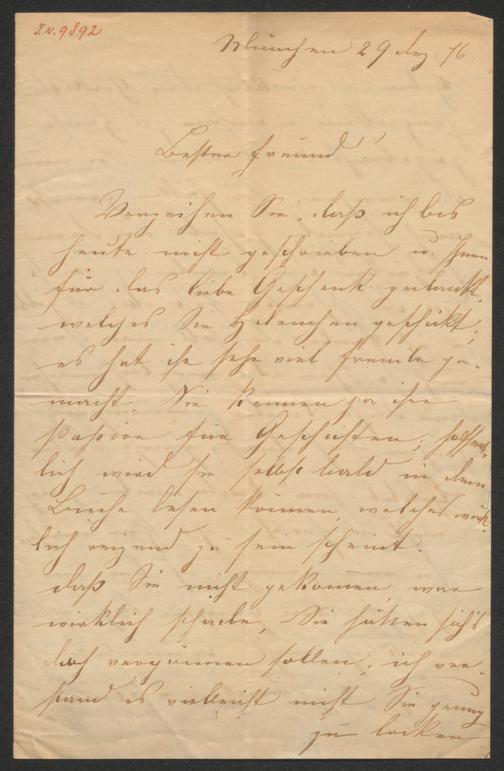 I.N. 9892
München 29 Dez. 76.
Bester Freund!
Verzeihen Sie, daß ich bis
heute nicht geschrieben u. Ihnen
für das liebe Geschenk gedankt,
welches Sie Helenchen geschickt;
es hat ihr sehr viel Freude ge-
macht. Sie kennen ja ihre
Passion für Geschichten; hoffent-
lich wird sie selbst bald in dem
Buche lesen können, welches wirk-
lich reizend zu sein scheint.
daß Sie nicht gekommen, war
wirklich schade, Sie hätten sich's
doch vergönnen sollen; ich ver-
stand es vielleicht nicht Sie genug
zu locken